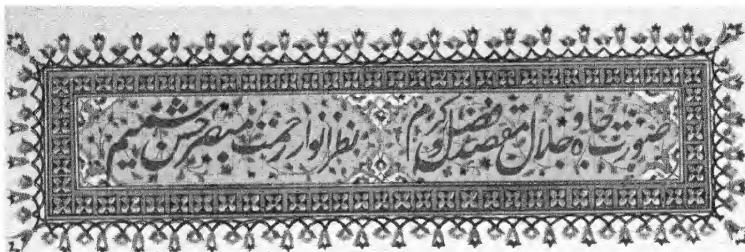 صورت جاه و جلالت مقصد فضل و کرم نظر انوار رحمت مبتصر حسن شیم